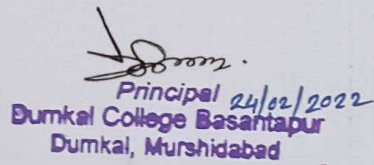 Principal 24/02/2022
Dumkal College Basantapur
Dumkal, Murshidabad